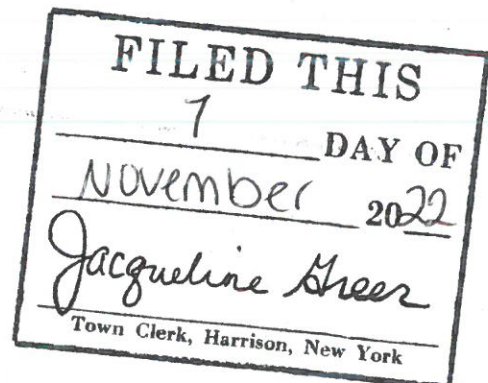 FILED THIS
7
DAY OF
November 2022
Jacqueline Greer
Town Clerk, Harrison, New York